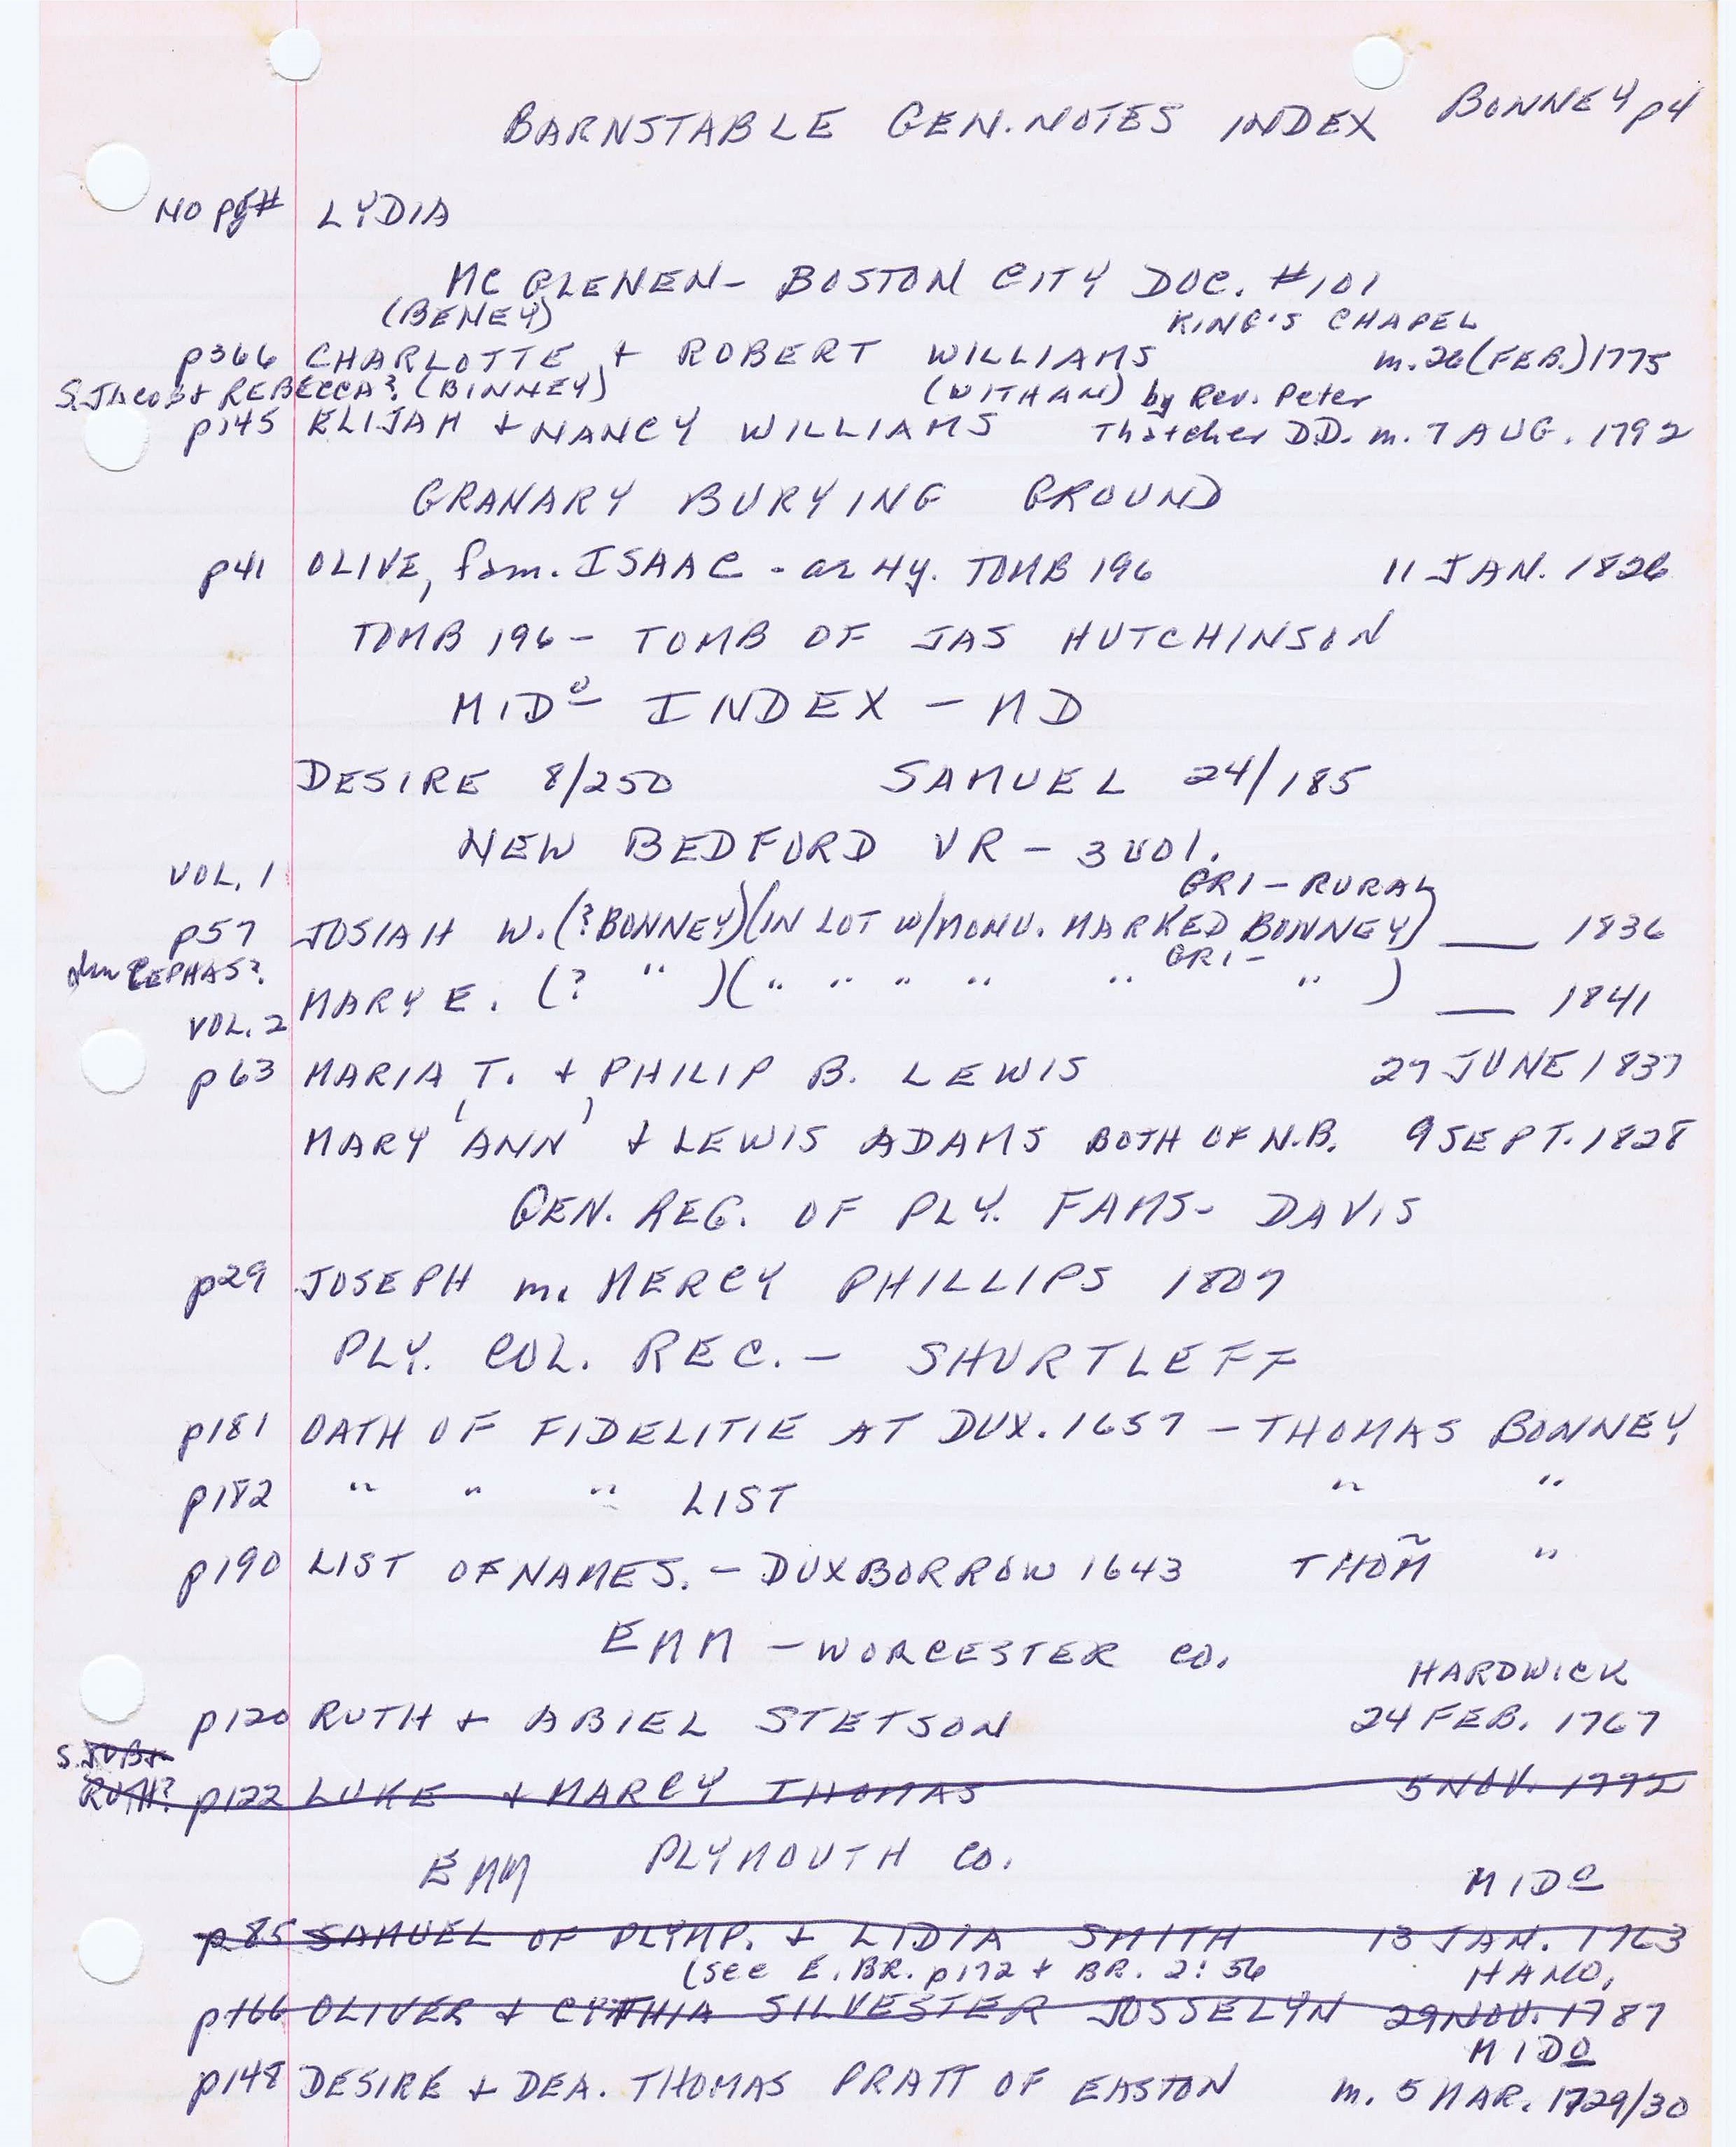 BARNSTABLE GEN. NOTES INDEX BONNEY p4
NO pg# LYDIA
MC GLENEN- BOSTON CITY DOC. #101
(BENEY) KING'S CHAPEL
p366 CHARLOTTE + ROBERT WILLIAMS m. 26 (FEB.) 1775
S. Jacob + REBECCA? (BINNEY) (WITHAM) by Rev. Peter
p145 ELIJAH + NANCY WILLIAMS Thatcher D.D. m. 7 AUG. 1792
GRANARY BURYING GROUND
p41 OLIVE, fam. ISAAC - ae 4y. TOMB 196 11 JAN. 1826
TOMB 196 - TOMB OF JAS HUTCHINSON
MIDo INDEX - MD
DESIRE 8/250 SAMUEL 24/185
NEW BEDFORD VR - 3 vol.
VOL. 1 GR1 - RURAL
p57 JOSIAH W. (? BONNEY) (IN LOT W/MONU. MARKED BONNEY) ___ 1836
CEPHAS? GR1 -
MARY E. (? " ) (" " " " " " ) ___ 1841
VOL. 2
p63 MARIA T. + PHILIP B. LEWIS 27 JUNE 1837
MARY 'ANN' + LEWIS ADAMS BOTH OF N.B. 9 SEPT. 1828
GEN. REG. OF PLY. FAMS- DAVIS
p29 JOSEPH m. MERCY PHILLIPS 1807
PLY. COL. REC. - SHURTLEFF
p181 OATH OF FIDELITIE AT DUX. 1657 - THOMAS BONNEY
p182 " " " LIST " "
p190 LIST OF NAMES. - DUXBORROW 1643 THOM̃ "
EMM - WORCESTER CO.
HARDWICK
p120 RUTH + ABIEL STETSON 24 FEB. 1767
S. JOB +
RUTH? p122 LUKE + MARCY THOMAS 5 NOV. 1772
EMM PLYMOUTH CO.
MIDo
p85 SAMUEL OF PLYMP. + LIDIA SMITH 13 JAN. 1763
(see E. BR. p172 + BR. 2:56 HANO,
p166 OLIVER + CYNTHIA SILVESTER JOSSELYN 29 NOV. 1787
MIDo
p148 DESIRE + DEA. THOMAS PRATT OF EASTON m. 5 MAR. 1729/30